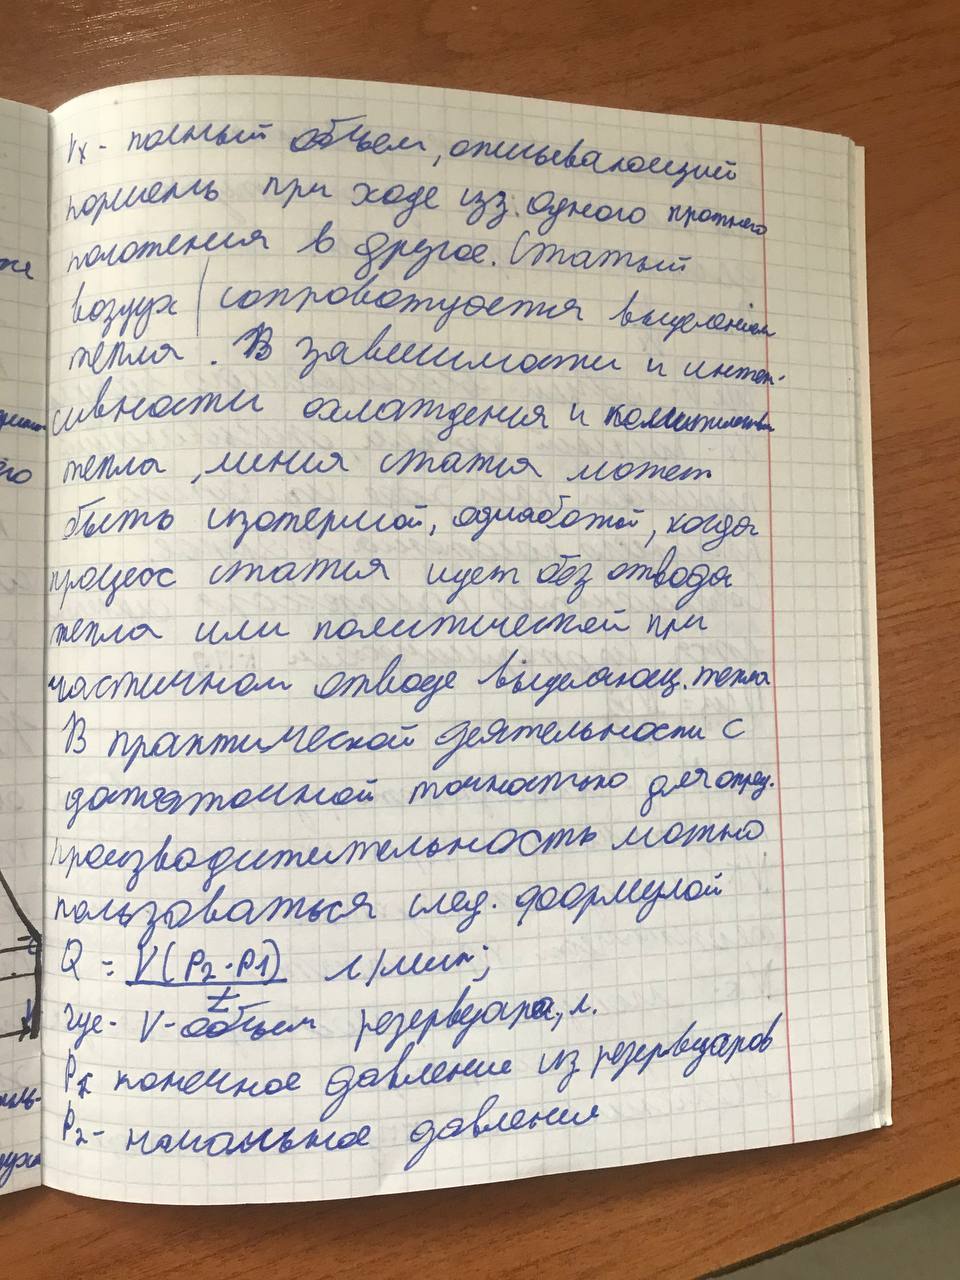 Vx - полный объем, описывающий
поршень при ходе из одного
положения в другое. Сжатый
воздух сопровождуется выделением
тепла. В зависимости и интен-
сивности охлаждения и
тепла, линия сжатия может
быть изотермой, когда
процесс сжатия идет без отвода
тепла или политической при
частичном отводе выделяющ. тепла
В практической деятельности с
достаточной точностью для опред.
производитительность можно
пользоваться след. формулой
Q = V(P2 - P1) л/мин;
t
где - V - объем резервуара, л.
P1 конечное давление из резервуаров
P2 - начальное давления